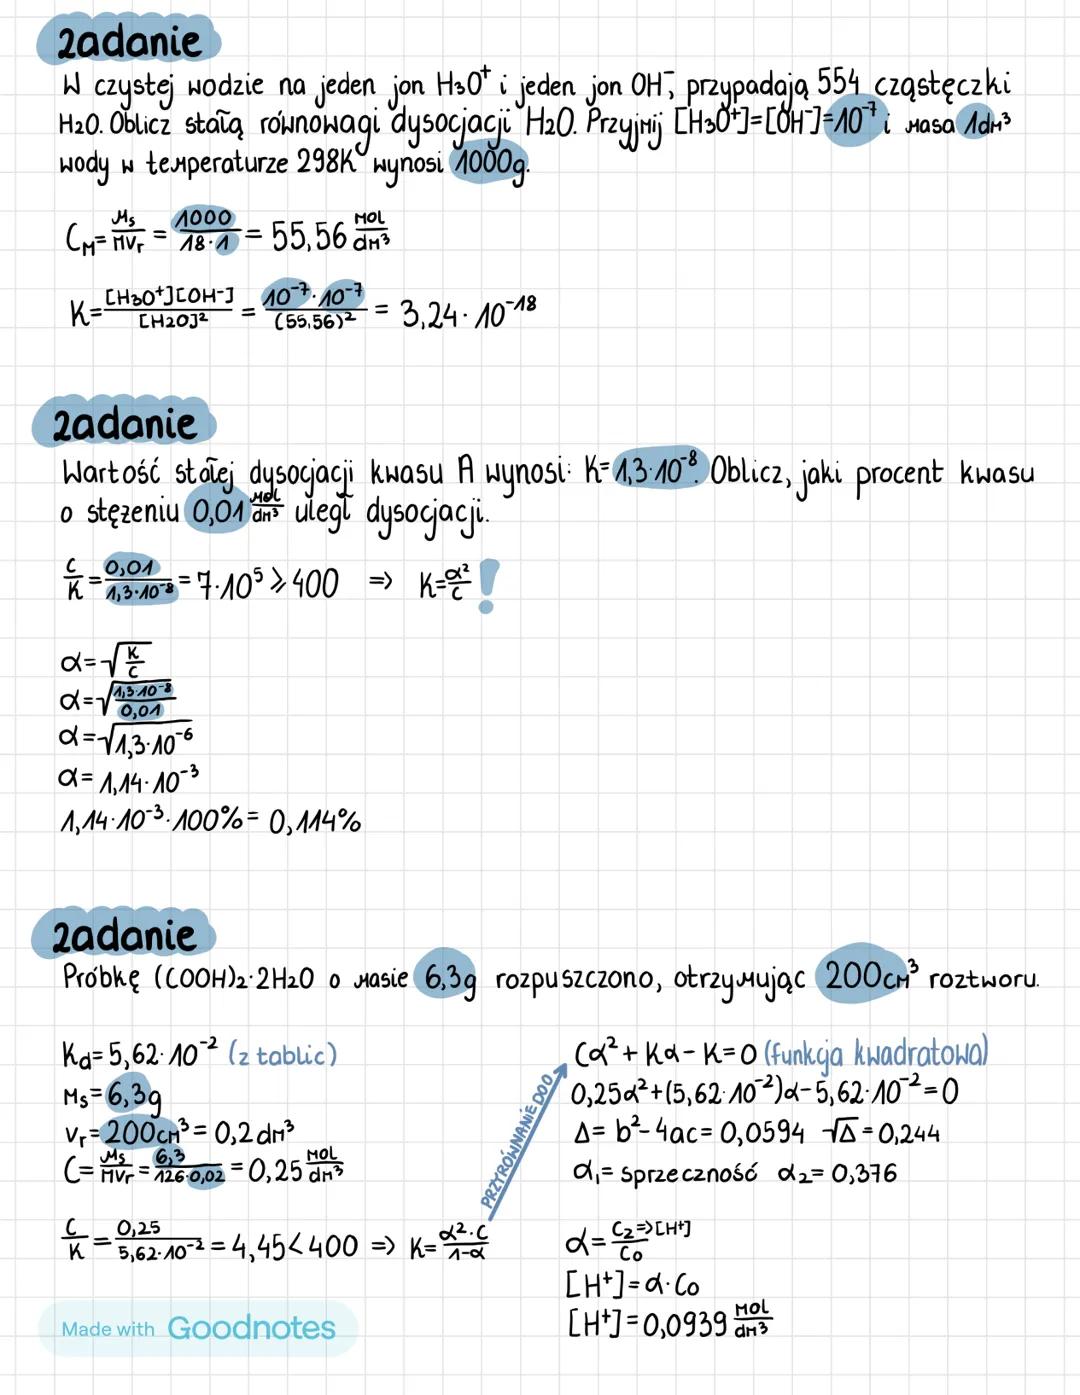 Zadanie
W czystej wodzie na jeden jon H₃O⁺ i jeden jon OH⁻, przypadają 554 cząstęczki
H₂O. Oblicz stałą równowagi dysocjacji H₂O. Przyjmij [H₃O⁺]=[OH⁻]=10⁻⁷ i masa 1dm³
wody w temperaturze 298K wynosi 1000g.
C_M = ms/MVr = 1000/18·1 = 55,56 mol/dm³
K = [H₃O⁺][OH⁻]/[H₂O]² = 10⁻⁷·10⁻⁷/(55,56)² = 3,24·10⁻¹⁸
Zadanie
Wartość stałej dysocjacji kwasu A wynosi: K=1,3·10⁻⁸. Oblicz, jaki procent kwasu
o stęzeniu 0,01 mol/dm³ uległ dysocjacji.
C/K = 0,01/1,3·10⁻⁸ = 7·10⁵ ≥ 400 ⇒ K=α²/C !
α=√(K/C)
α=√(1,3·10⁻⁸/0,01)
α=√1,3·10⁻⁶
α= 1,14·10⁻³
1,14·10⁻³·100% = 0,114%
Zadanie
Próbkę (COOH)₂·2H₂O o masie 6,3g rozpuszczono, otrzymując 200cm³ roztworu.
Kd= 5,62·10⁻² (z tablic)
ms=6,3g
Vr=200cm³= 0,2dm³
C= ms/MVr = 6,3/126·0,02 = 0,25 mol/dm³
C/K = 0,25/5,62·10⁻² = 4,45<400 ⇒ K= α²·C/1-α
PRZYRÓWNANIE DO 0
Cα²+Kα-K=0 (funkcja kwadratowa)
0,25α²+(5,62·10⁻²)α-5,62·10⁻²=0
Δ= b²-4ac= 0,0594 √Δ=0,244
α₁= sprzeczność α₂= 0,376
α= C₂⇒[H⁺]/C₀
[H⁺]=α·C₀
[H⁺]=0,0939 mol/dm³
Made with Goodnotes